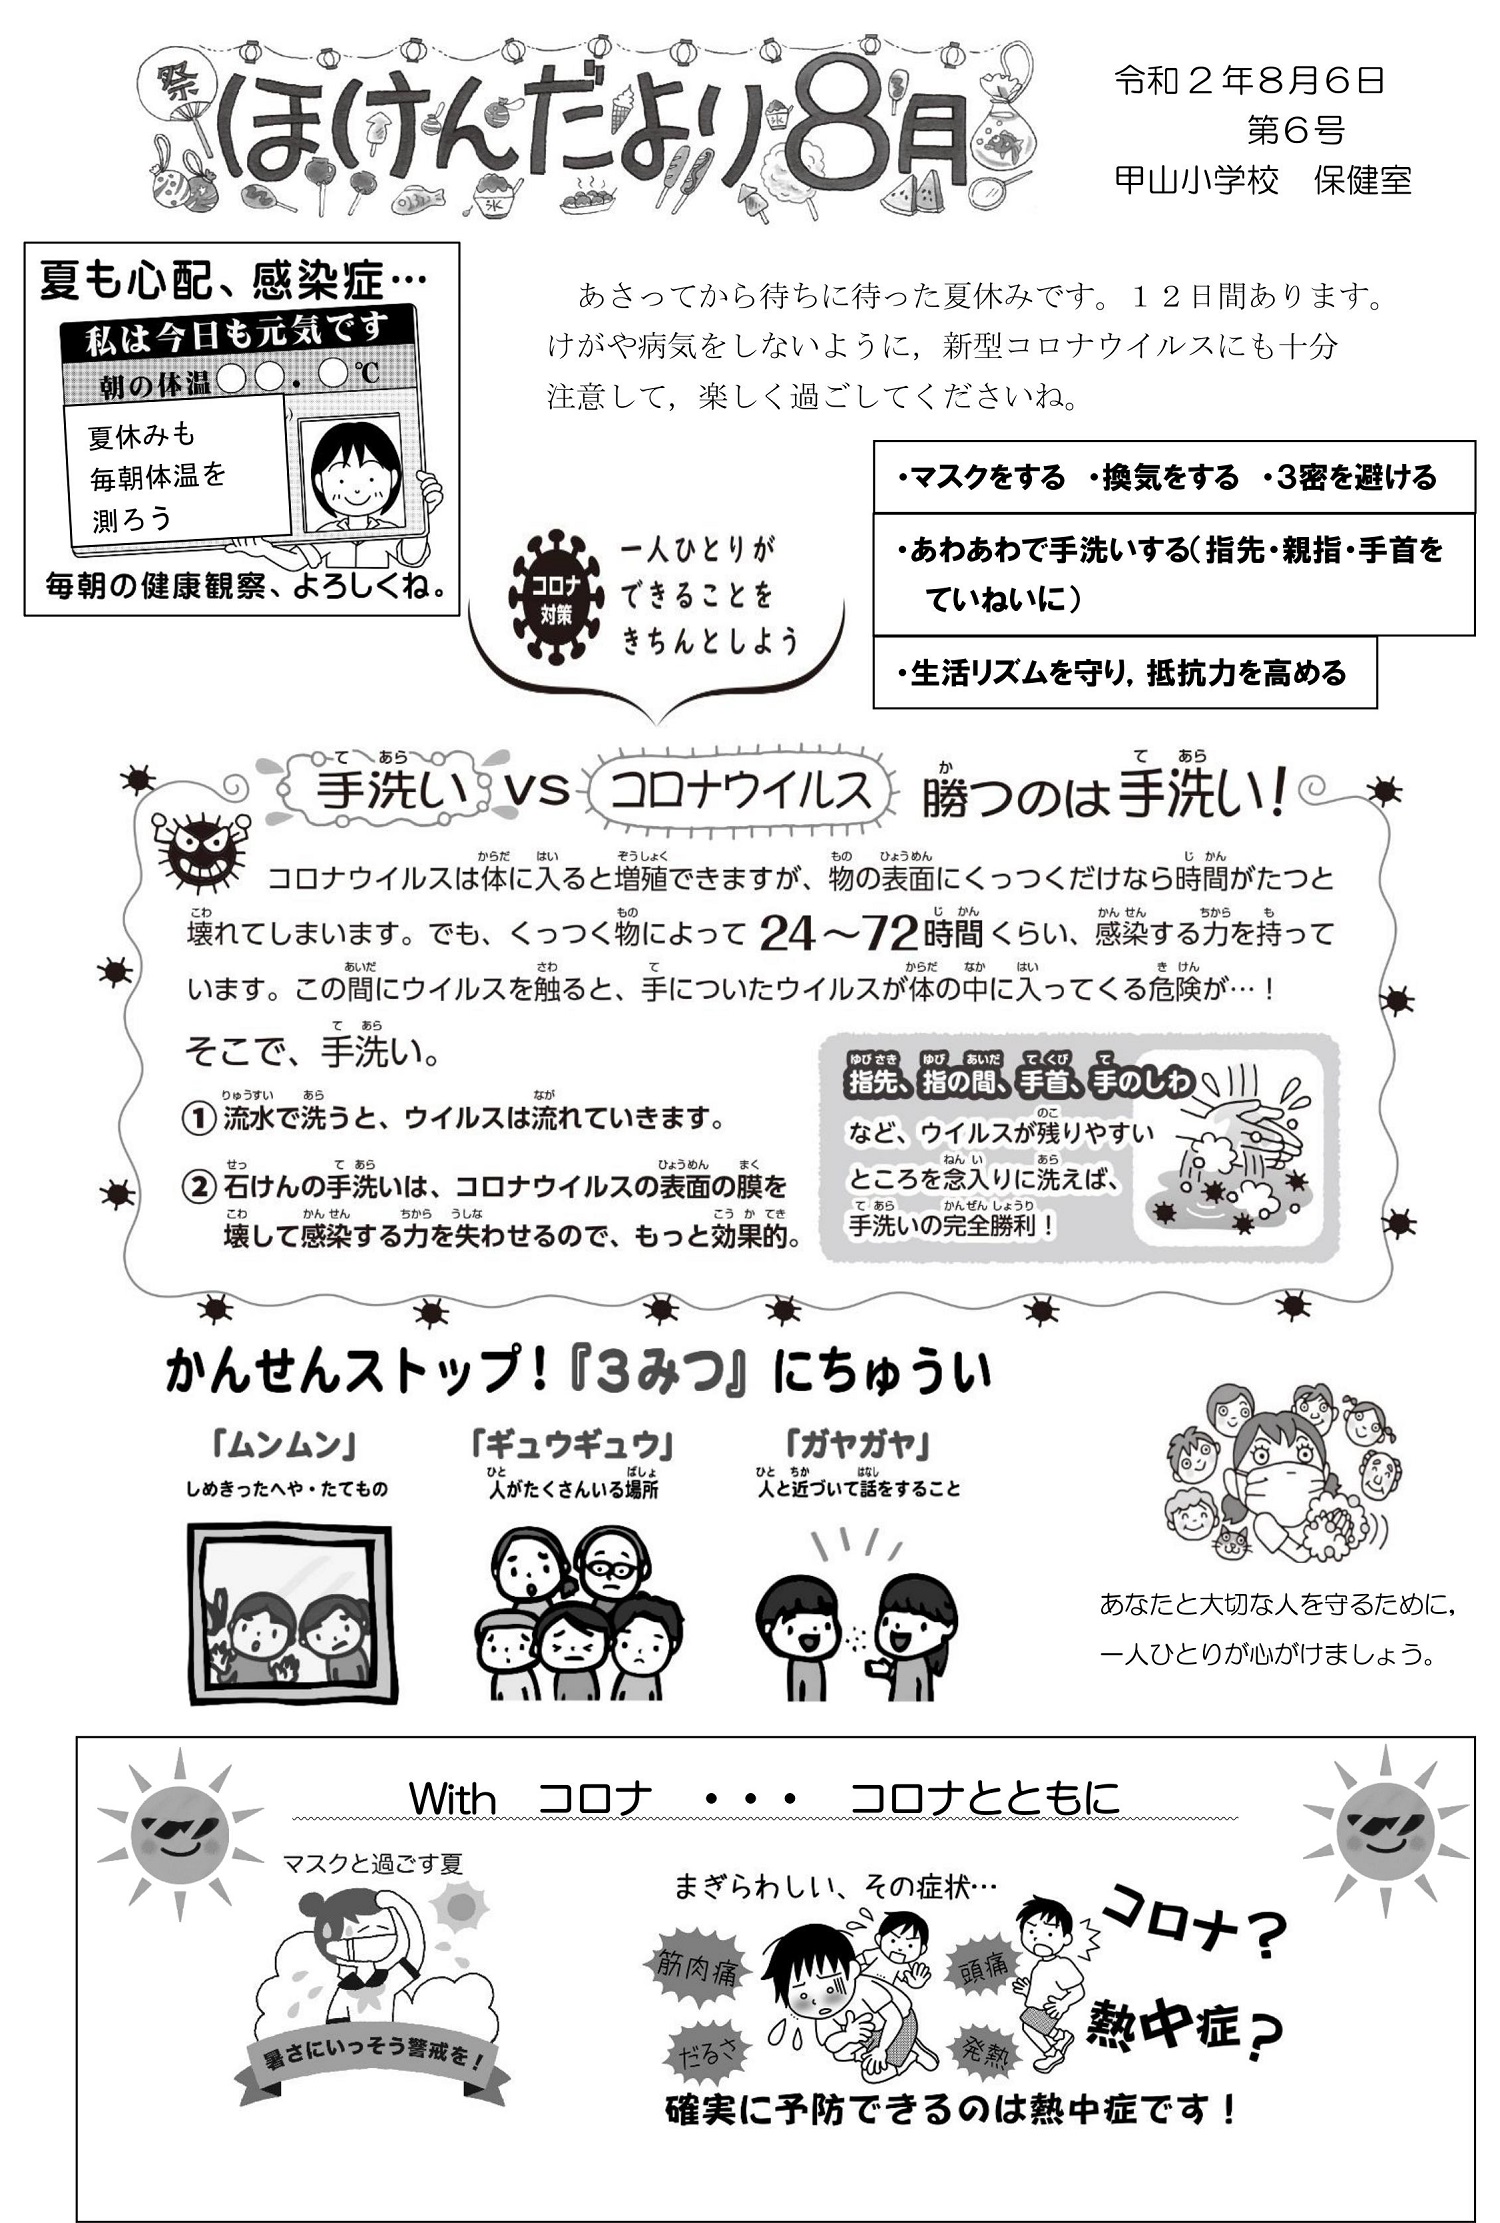 祭
ほけんだより8月
氷
氷
令和２年８月６日
第６号
甲山小学校　保健室
夏も心配、感染症…
私は今日も元気です
朝の体温○○.○℃
夏休みも
毎朝体温を
測ろう
毎朝の健康観察、よろしくね。
あさってから待ちに待った夏休みです。１２日間あります。
けがや病気をしないように，新型コロナウイルスにも十分
注意して，楽しく過ごしてくださいね。
・マスクをする　・換気をする　・３密を避ける
・あわあわで手洗いする（指先・親指・手首を
ていねいに）
・生活リズムを守り，抵抗力を高める
コロナ
対策
一人ひとりが
できることを
きちんとしよう
て　あら
か
て　あら
手洗い VS コロナウイルス 勝つのは手洗い！
からだ　はい　ぞうしょく　もの　ひょうめん　じ　かん
コロナウイルスは体に入ると増殖できますが、物の表面にくっつくだけなら時間がたつと
こわ　もの　じ　かん　かん せん　ちから　も
壊れてしまいます。でも、くっつく物によって 24～72時間くらい、感染する力を持って
あいだ　さわ　て　からだ　なか　はい　き けん
います。この間にウイルスを触ると、手についたウイルスが体の中に入ってくる危険が…！
て　あら
そこで、手洗い。
りゅうすい　あら　なが
①流水で洗うと、ウイルスは流れていきます。
せっ　て あら　ひょうめん　まく
②石けんの手洗いは、コロナウイルスの表面の膜を
こわ　かん せん　ちから　うしな　こう か てき
壊して感染する力を失わせるので、もっと効果的。
ゆびさき　ゆび　あいだ　て くび　て
指先、指の間、手首、手のしわ
のこ
など、ウイルスが残りやすい
ねん い　あら
ところを念入りに洗えば、
て あら　かんぜん しょうり
手洗いの完全勝利！
かんせんストップ！『３みつ』にちゅうい
「ムンムン」
しめきったへや・たてもの
「ギュウギュウ」
ひと　ばしょ
人がたくさんいる場所
「ガヤガヤ」
ひと　ちか　はなし
人と近づいて話をすること
あなたと大切な人を守るために，
一人ひとりが心がけましょう。
With　コロナ　・・・　コロナとともに
マスクと過ごす夏
暑さにいっそう警戒を！
まぎらわしい、その症状…
筋肉痛
頭痛
だるさ
発熱
コロナ？
熱中症？
確実に予防できるのは熱中症です！